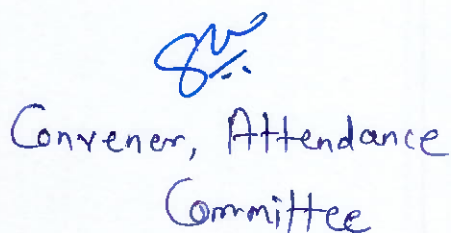 Convener, Attendance
Committee